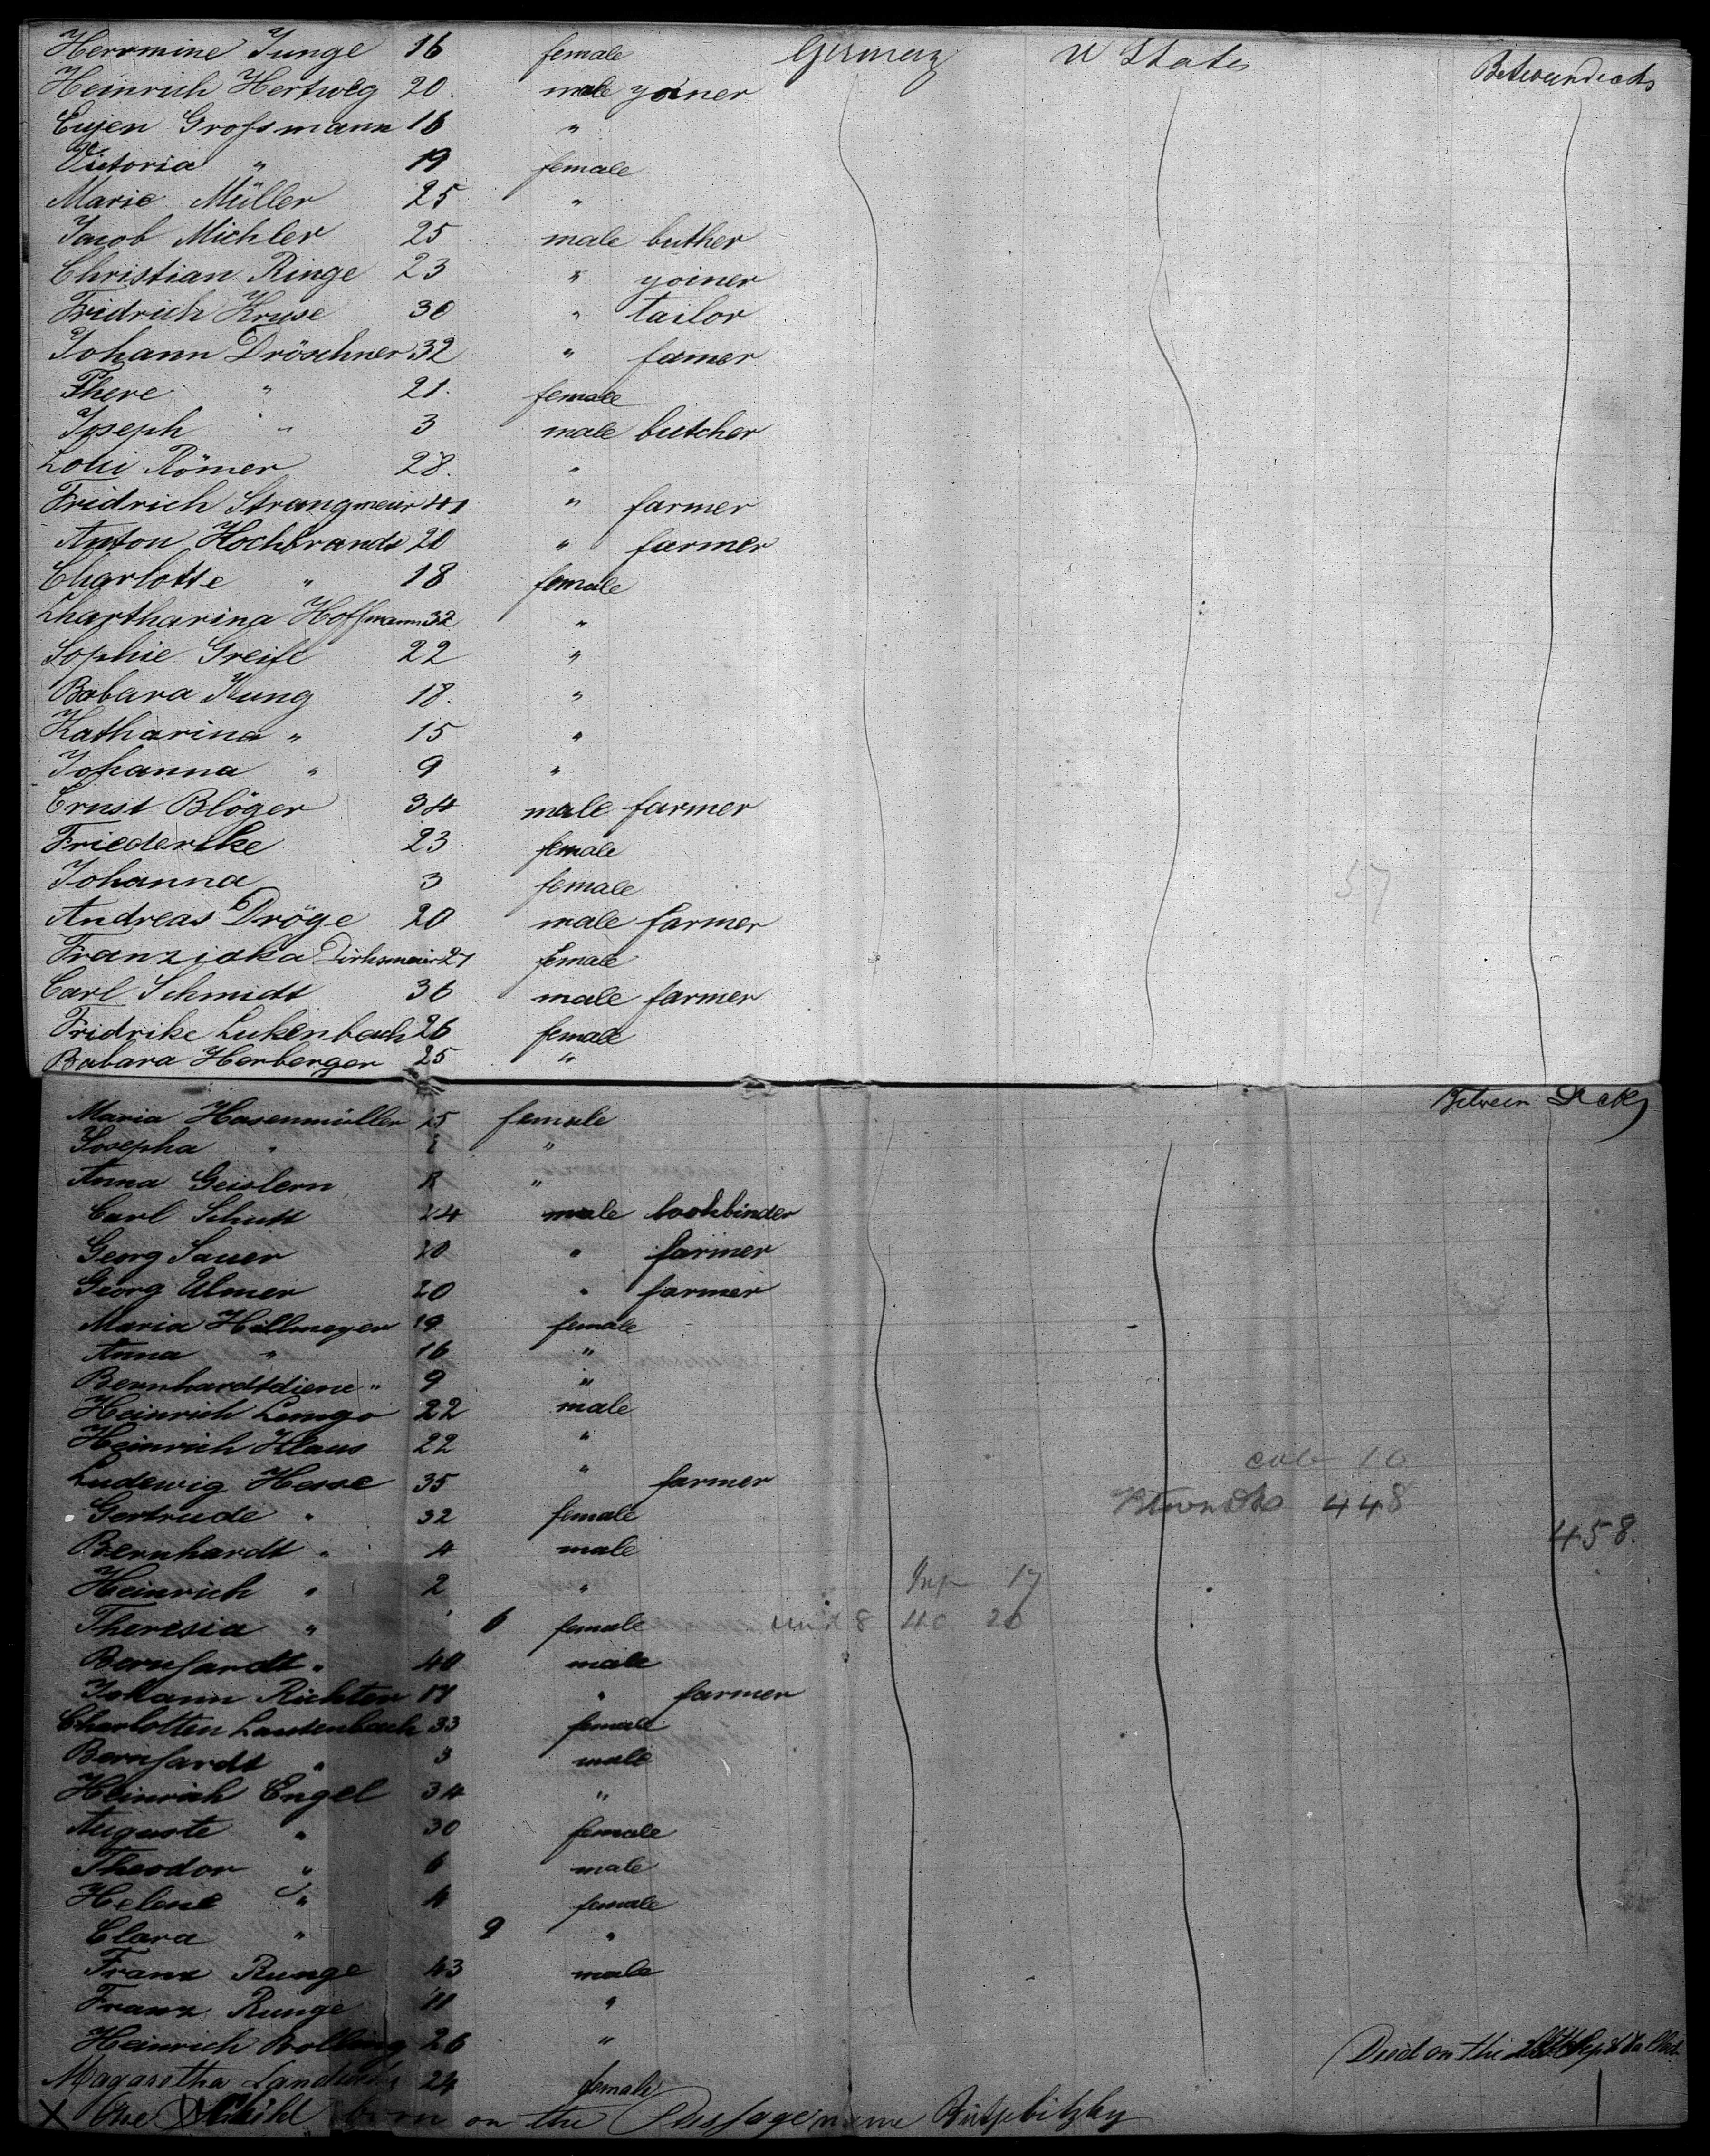 Herrmine Junge 16 female Germany U States Betweendecks
Heinrich Hertweg 20. male yoiner
Eujen Grofsmann 16 "
Victoria " 19 female
Marie Müller 25 "
Jacob Michler 25 male buther
Christian Ringe 23 " yoiner
Fridrich Kruse 30 " tailor
Johann Dröschner 32 " famer
There " 21. female
Joseph " 3 male butcher
Loui Römer 28. "
Fridrich Strangmeier 41 " farmer
Anton Hochbrandt 20 " farmer
Charlotte " 18 female
Chartharina Hoffmann 32 "
Sophie Greife 22 "
Babara Kung 18. "
Katharina " 15 "
Johanna " 9 "
Ernst Blöger 34 male farmer
Friederike 23 female
Johanna 3 female
57
Andreas Dröge 20 male farmer
Franziska Dirksmeier 21 female
Carl Schmidt 36 male farmer
Fridrike Lukenbach 26 female
Babara Herberger 25 "
Between Decks
Maria Hasenmüller 25 female
Josepha " "
Anna Geislern "
Carl Schutt 24 male bookbinder
Georg Sauer 20 " farmer
Georg Ulmer 20 " farmer
Maria Hillmeyer 19 female
Anna " 16 "
Bernhardtdiene " 9 "
Heinrich Lemgo 22 male
Heinrich Klaus 22 "
Ludewig Hesse 35 " farmer
cab 10
Gertrude " 32 female
448
458.
Bernhardt " 4 male
Heinrich " 2 "
Inf 17
Theresia " 6 female
und 8 40 20
Bernhardt " 40 male
Johann Richter 17 " farmer
Charlotten Lautenbach 33 female
Bernhardt " 3 male
Heinrich Engel 34 "
Auguste " 30 female
Theodor " 6 male
Helene " 4 female
Clara " 9 "
Franz Runge 43 male
Franz Runge 11 "
Heinrich Bolling 26 "
Died on the
Magaretha 24 female
1
X One Child born on the Passage name